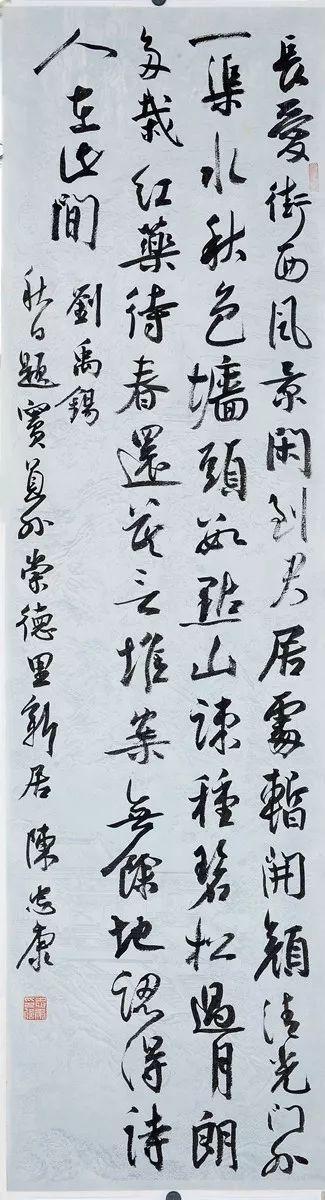 長愛街西風景閑到君居處暫開顏清光門外
一渠水秋色墻頭數點山疎種碧松過月朗
多栽紅藥待春還莫言堆案無餘地認得詩
人在此間
劉禹錫
秋日題竇員外崇德里新居 陳志康